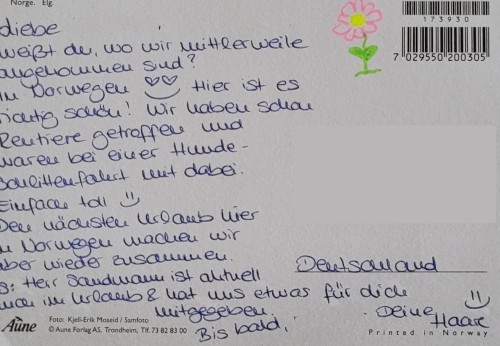 Norge. Elg.
liebe
weißt du, wo wir mittlerweile
angekommen sind?
In Norwegen Hier ist es
richtig schön! Wir haben schon
Rentiere getroffen und
waren bei einer Hunde-
schlittenfahrt mit dabei.
Einfach toll
Den nächsten Urlaub hier
in Norwegen machen wir
aber wieder zusammen.
S: Herr Sandmann ist aktuell
auch im Urlaub & hat uns etwas für dich
mitgegeben.
Bis bald,
173930
7 029550 200305
Deutschland
Deine
Haare
Aune
Foto: Kjell-Erik Moseid / Samfoto
© Aune Forlag AS, Trondheim, Tlf. 73 82 83 00
Printed in Norway